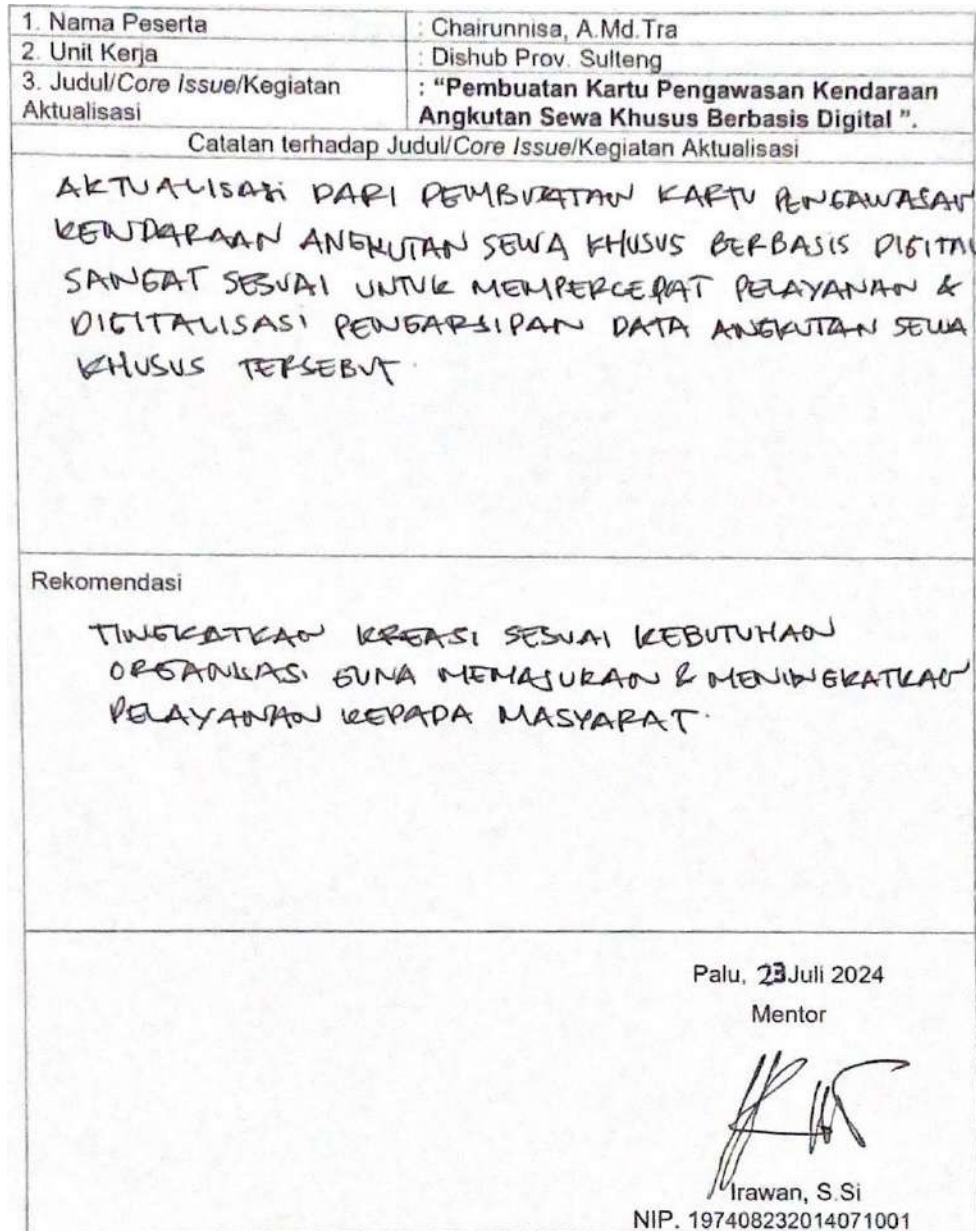 1. Nama Peserta : Chairunnisa, A.Md.Tra
2. Unit Kerja : Dishub Prov. Sulteng
3. Judul/Core Issue/Kegiatan : “Pembuatan Kartu Pengawasan Kendaraan
Aktualisasi Angkutan Sewa Khusus Berbasis Digital ”.
Catatan terhadap Judul/Core Issue/Kegiatan Aktualisasi
AKTUALISASI DARI PEMBUATAN KARTU PENGAWASAN
KENDARAAN ANGKUTAN SEWA KHUSUS BERBASIS DIGITAL
SANGAT SESUAI UNTUK MEMPERCEPAT PELAYANAN &
DIGITALISASI PENGARSIPAN DATA ANGKUTAN SEWA
KHUSUS TERSEBUT.
Rekomendasi
TINGKATKAN KREASI SESUAI KEBUTUHAN
ORGANISASI GUNA MEMAJUKAN & MENINGKATKAN
PELAYANAN KEPADA MASYARAT.
Palu, 23 Juli 2024
Mentor
Irawan, S.Si
NIP. 197408232014071001